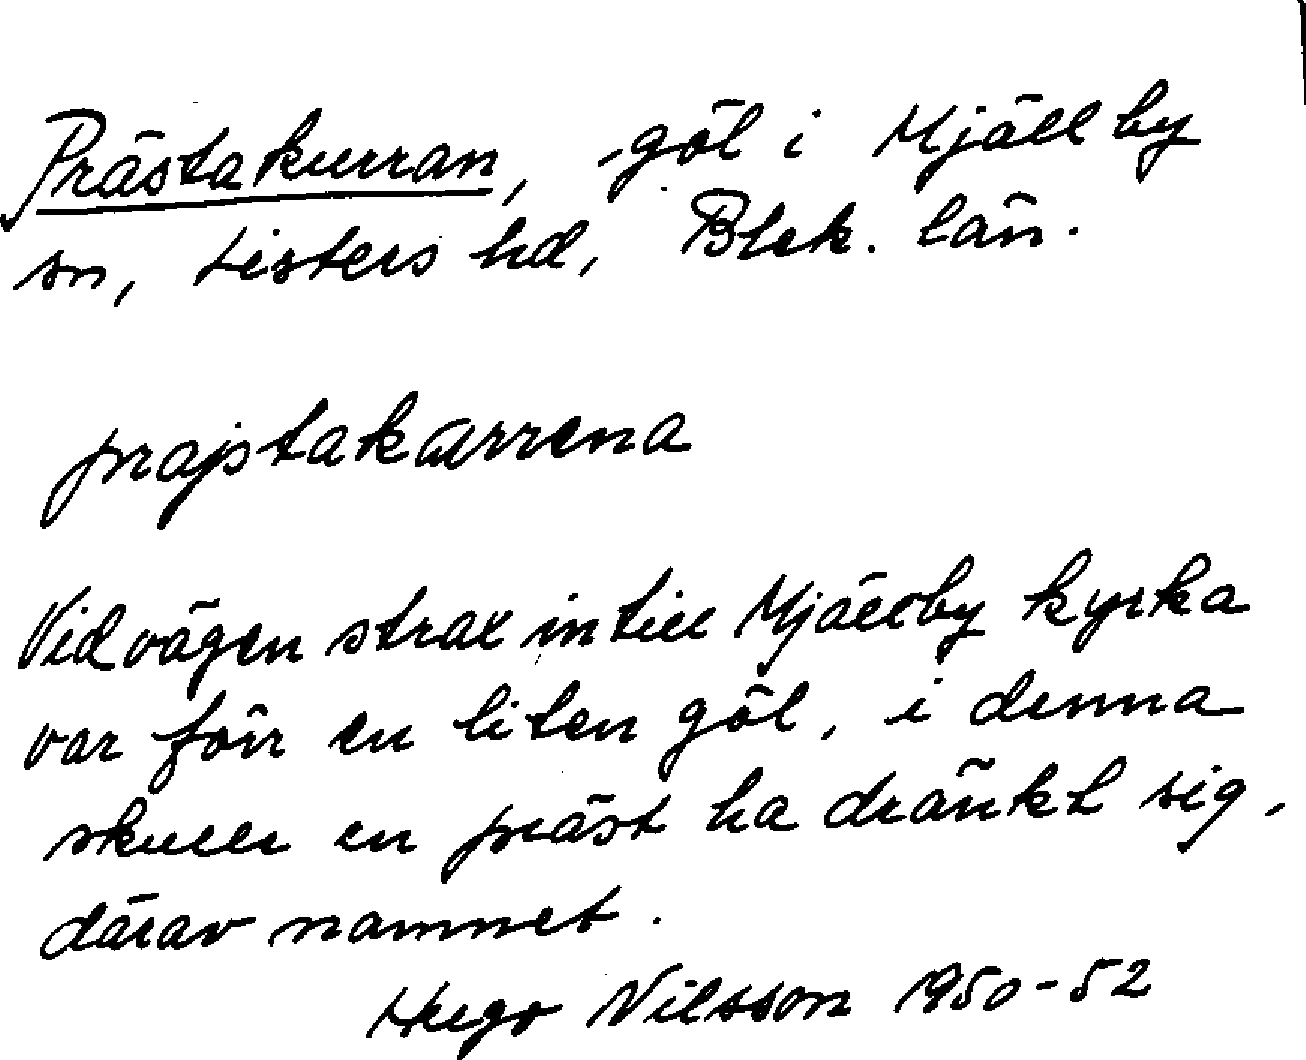 Prästakurran, göl i Mjällby
sn, Listers hd, Blek. län.
prajstakærrena
Vid vägen strax intill Mjällby kyrka
var förr en liten göl, i denna
skulle en präst ha dränkt sig,
därav namnet.
Hugo Nilsson 1950-52